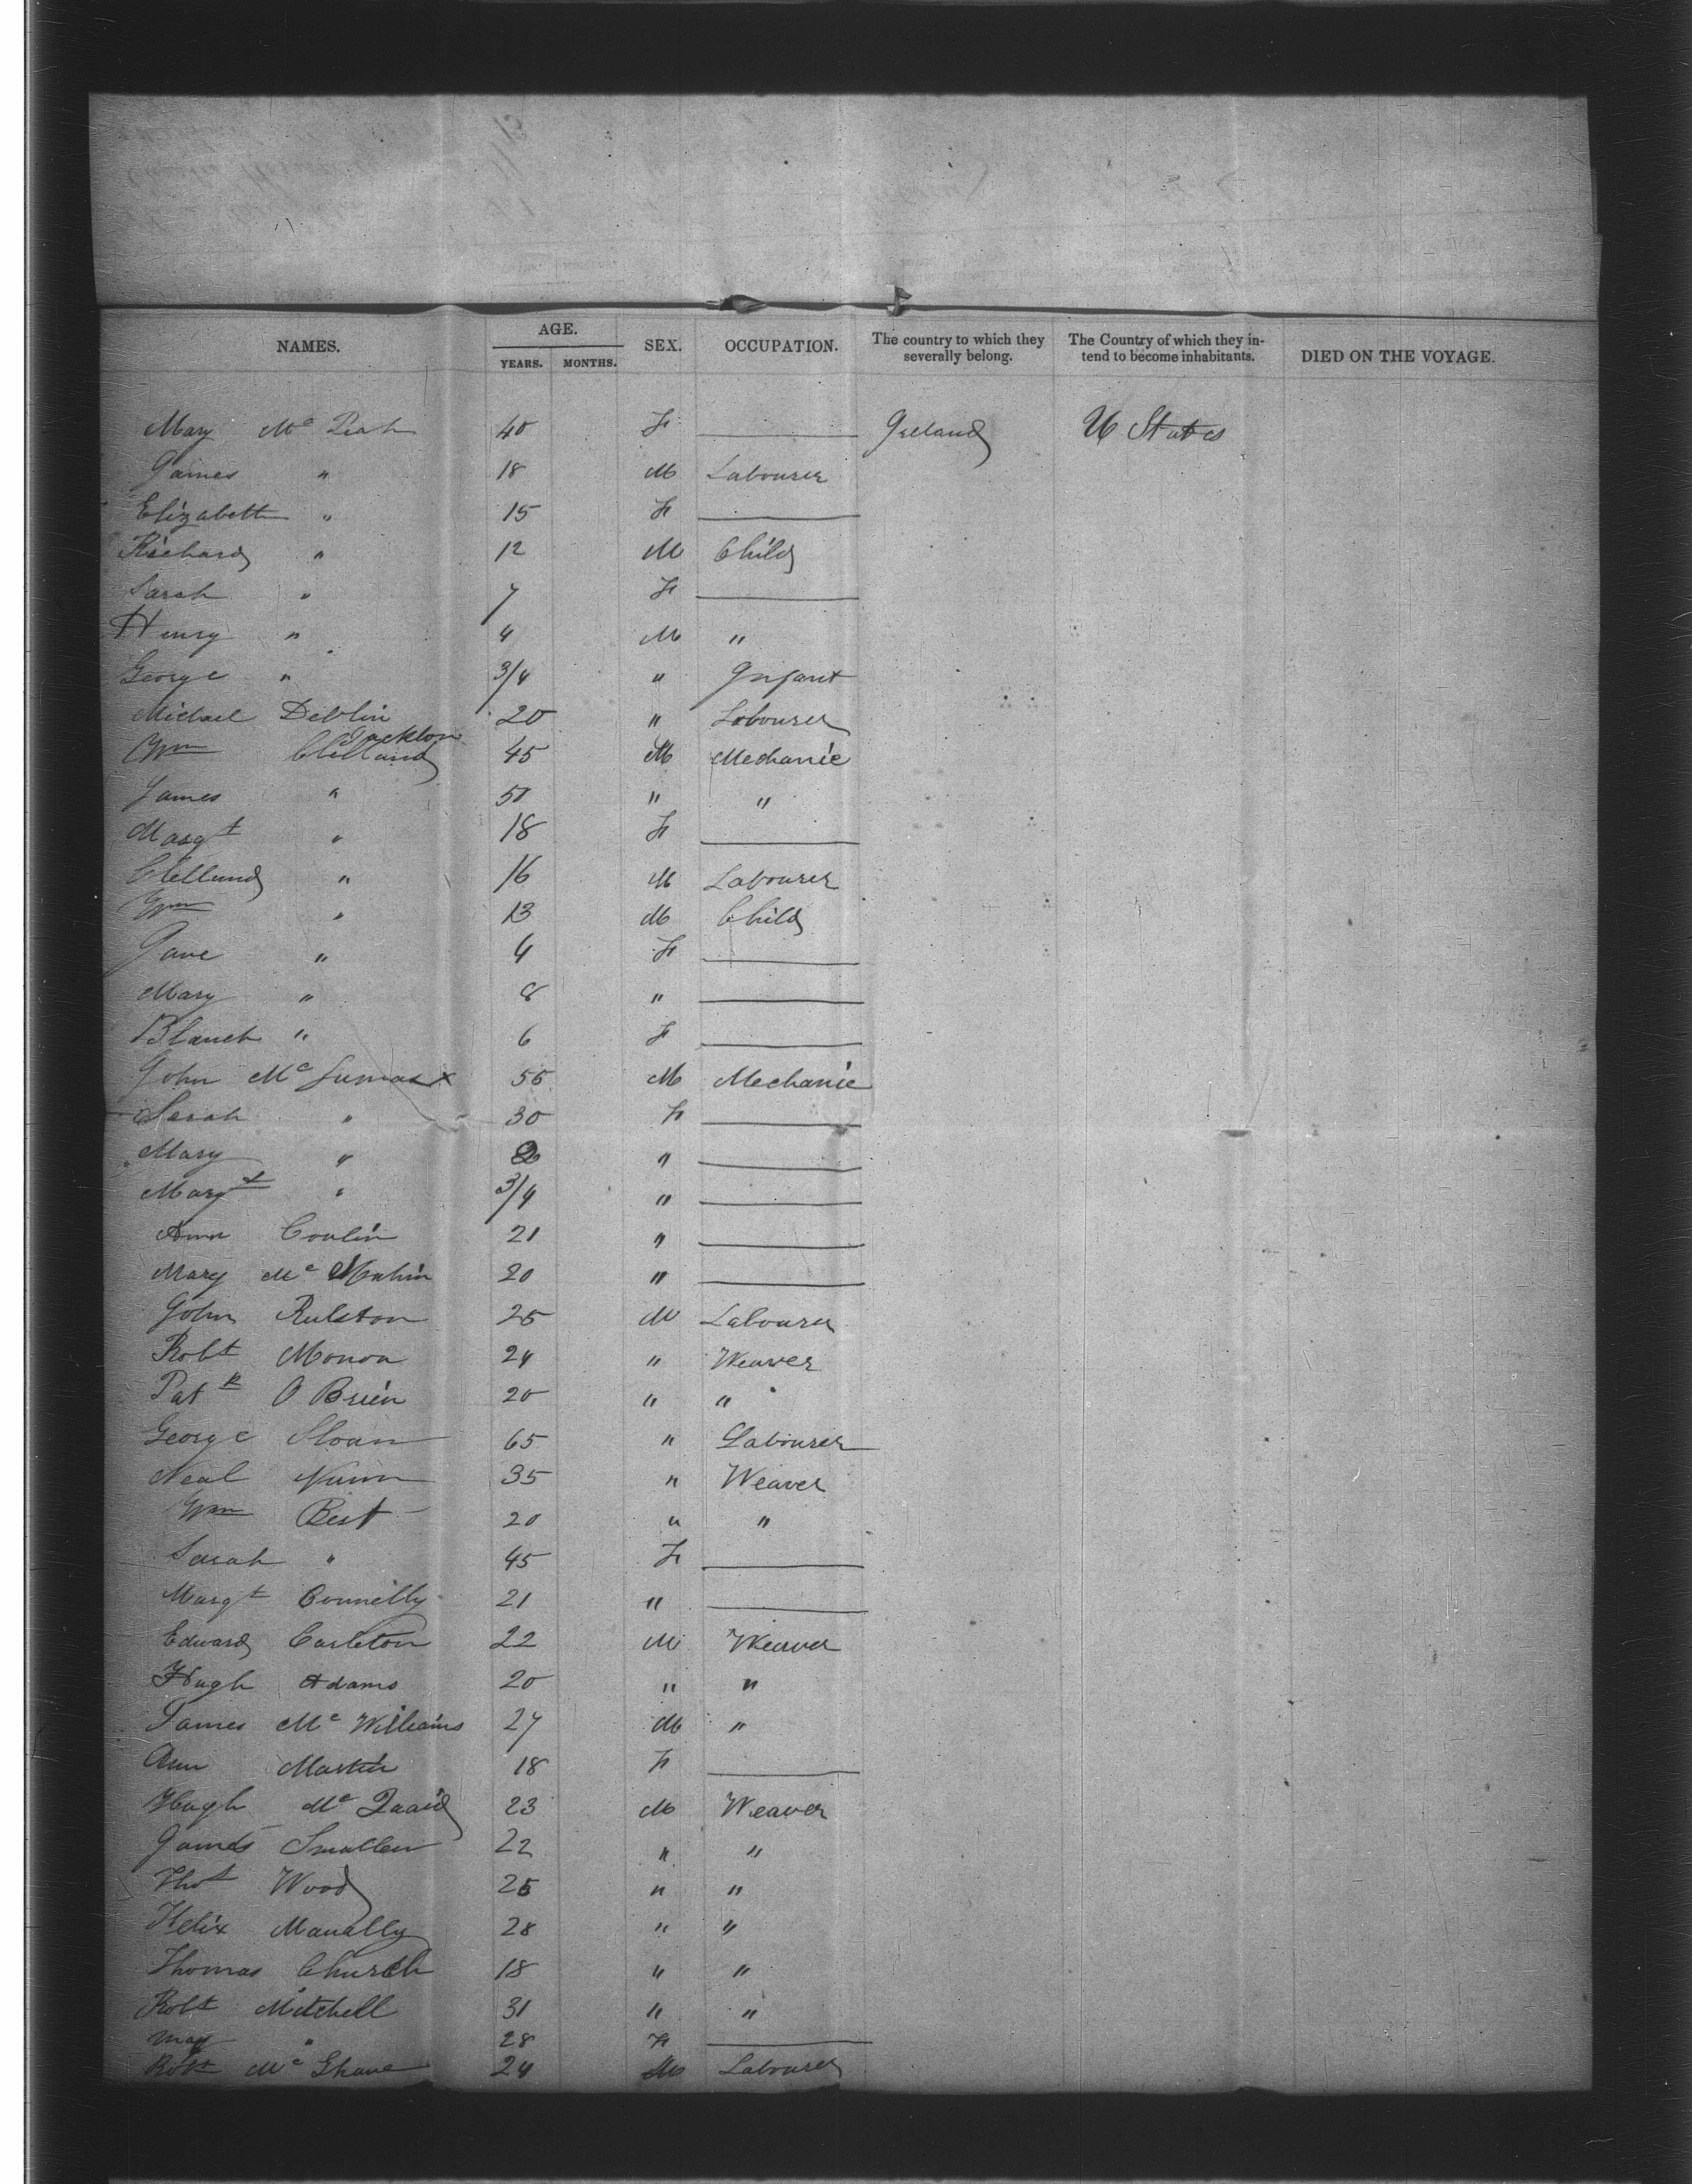 NAMES. AGE. YEARS. MONTHS. SEX. OCCUPATION. The country to which they severally belong. The Country of which they in- tend to become inhabitants. DIED ON THE VOYAGE.
Mary Mc 40 F Ireland U States
James " 18 M Labourer
Elizabeth " 15 F
Richard " 12 M Child
Sarah " 7 F
Henry " 4 M "
George " 3/4 " Infant
Michael Devlin 20 " Labourer
Jackson
Wm Clelland 45 M Mechanic
James " 50 " "
Margt " 18 F
Clelland " 16 M Labourer
Wm " 13 M Child
Jane " 4 F
Mary " 8 "
Blanch " 6 F
John Mc 55 M Mechanic
Sarah " 30 F
Mary " 2 "
Margt " 3/4 "
Ann Conlin 21 "
Mary Mc Mahin 20 "
John Rulston 25 M Labourer
Robt 24 " Weaver
Patk O Brien 20 " "
George Sloan 65 " Labourer
Neal 35 " Weaver
Wm Best 20 " "
Sarah " 45 F
Margt Connelly 21 "
Edward Carleton 22 M Weaver
Hugh Adams 20 " "
James Mc Williams 27 M "
Ann Martin 18 F
Hugh Mc Quaid 23 M Weaver
James Smallen 22 " "
Thos Wood 25 " "
Felix Manally 28 " "
Thomas Church 18 " "
Robt Mitchell 31 " "
May " 28 F
Robt Mc Shane 24 M Labourer